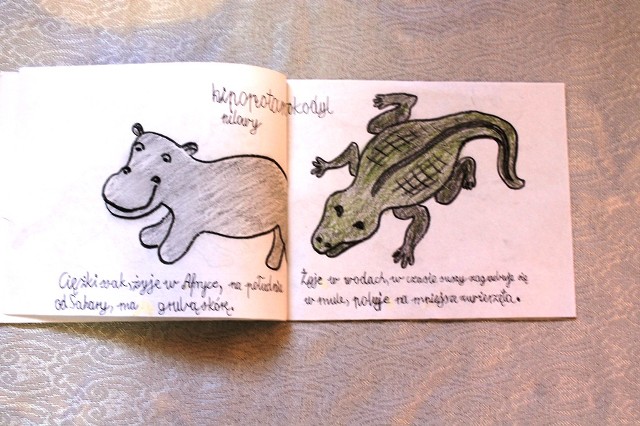 hipopotam krokodyl
nilowy
Ciężki ssak, żyje w Afryce, na południe
od Sahary, ma grubą skórę.
Żyje w wodach, w czasie suszy zagrzebuje się
w mule, poluje na mniejsze zwierzęta.